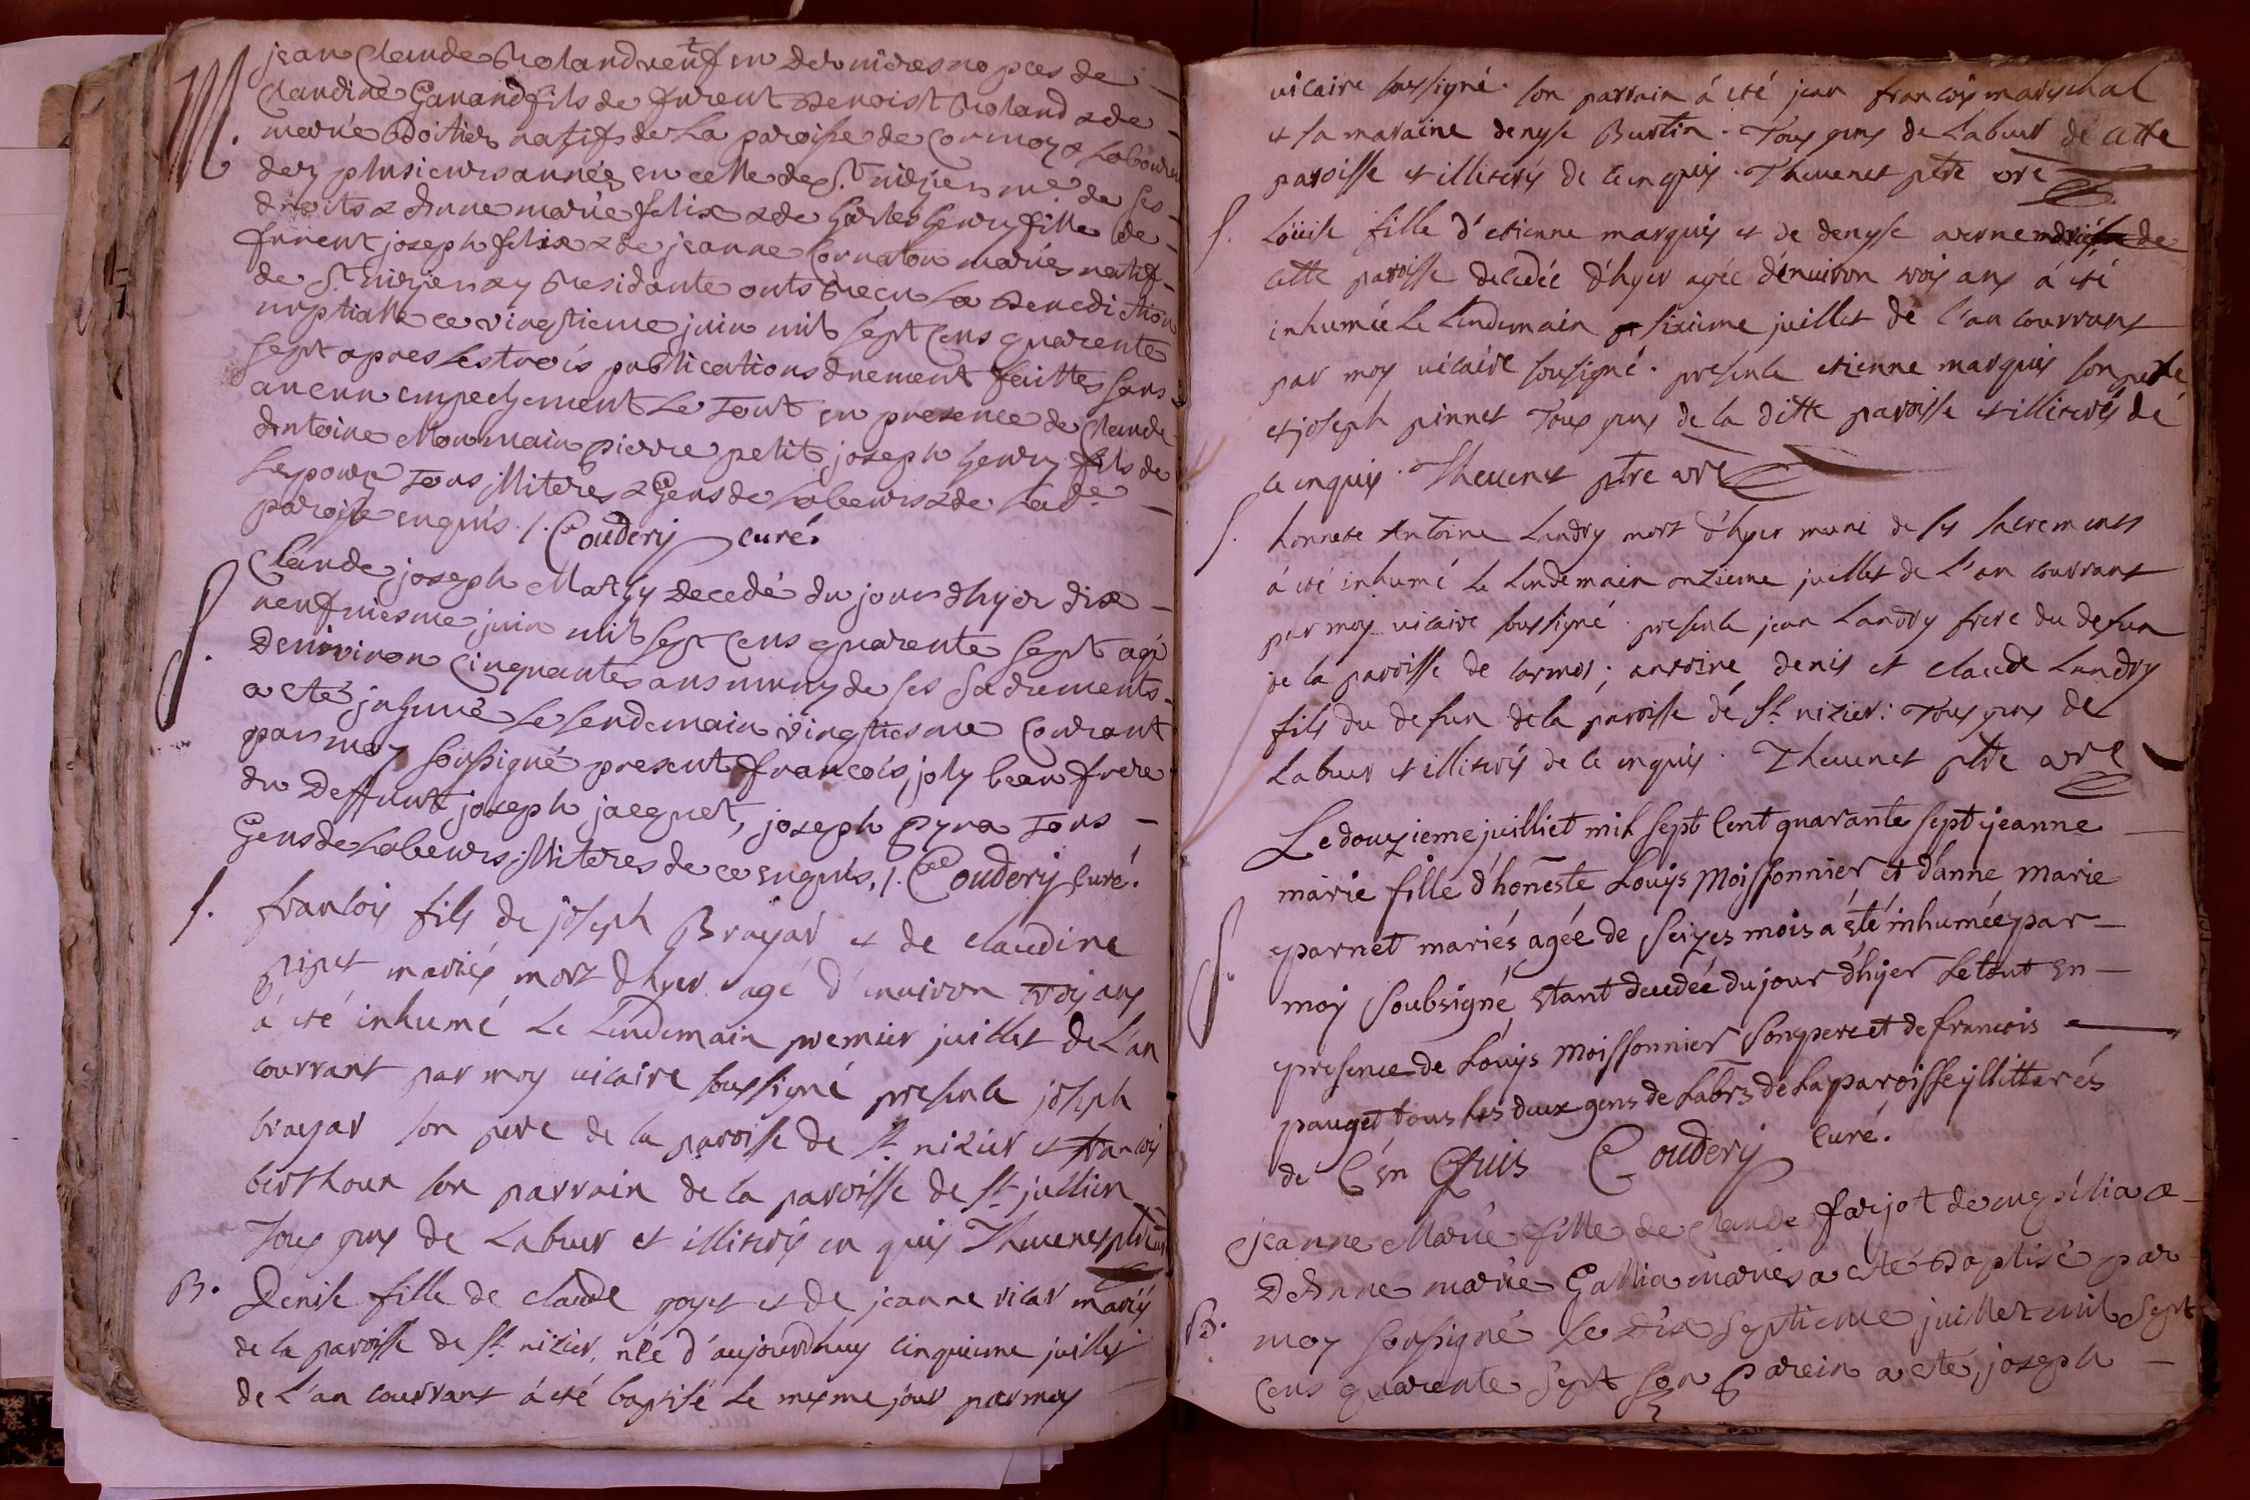 M.
jean Claude Roland veuf en dernieres nopces de
Claudine Ganand fils de furent Benoist Roland & de
marie Boitier natifs de La paroisse de Cormoz & Laboureur
dez plusieurs années en celle de St nizier me de ses
droits & Anne marie felix & de Charles henry fille de
furent joseph felix & de jeanne Cornaton mariés natif
de St nizier & y Residante onts Recu La Benediction
nuptialle ce vingtieme juin mil sept Cens quarente
sept apres Les trois publications duement faittes sans
aucun empechement Le Tout en presence de Claude
Antoine Monmain pierre petit joseph henry fils de
Lepoux Tous illiteres & Gens de Labeurs & de Lade
paroisse enquis ./. Couderij curé.
S.
Claude joseph Mathy Decedé du jours dhyer dix
neufviesme juin mil sept Cens quarente sept agé
Denviron Cinquantes ans muny de ses Sacrements
a eté jnhumé Le Lendemain vingtiesme Courant
par moy soussigné present francois joly beau frere
du Deffunt joseph jacquet, joseph pyra Tous
Gens de Labeurs illiteres de ce enquis ./. Couderij Curé.
S.
francois fils de joseph Brayar et de claudine
pipet mariés mort dhyer agé d'environ trois ans
á eté inhumé Le Lendemain premier juillet de L'an
courrant par moy vicaire soussigné presents joseph
brayar son pere de la paroisse de st nizier et francois
berthoux son parrain de la paroisse de st jullien
Tous gens de Labeur et illiterés enquis Thevenet ptre
B.
Denise fille de claude poyet et de jeanne vicar mariés
de la paroisse de st nizier, née d'aujourdhuy cinquieme juillet
de L'an courrant á eté baptisé Le mesme jour par moy
vicaire soussigné. son parrain á eté jean francois mareschal
et sa maraine denyse Burtin. Tous gens de Labeur de cette
paroisse et illiterés de ce enquis. Thevenet ptre vre
S.
Loüise fille d'etienne marquis et de denyse verne mariés de
cette paroisse decedée d'hyer agée d'environ trois ans á eté
inhumée Le Lendemain sixieme juillet de l'an courrant
par moy vicaire sousigné. presents etienne marquis son pere
et joseph pinnet Tous gens de la ditte paroisse et illiterés de
ce enquis. Thevenet ptre vre
S.
honnete Antoine Landry mort d'hyer muni de ses sacrements
á eté inhumé Le Lendemain onzieme juillet de L'an courrant
par moy vicaire soussigné presents jean Landry frere du defun
de la paroisse de cormos; antoine, denis et claude Landry
fils du defun de la paroisse de st nizier: Tous gens de
Labeur et illiterés de ce enquis. Thevenet ptre vre
S.
Le douzieme juilliet mil sept Cent quarante sept jeanne
marie fille d'honeste Louÿs Moissonnier et d'anne marie
parnet mariés agée de seizes mois a été inhumée par
moy soubsigné, étant decedée du jour d'hÿer Le tout en
presence de Louÿs Moissonnier son pere et de francois
pauget tous Les deux gens de Labrs de La paroisse ÿllitterés
de C'en Quis Couderij Curé.
B.
jeanne Marie fille de Claude farjot de &
De Anne marie Gallia mariés a eté Baptisé par
moy soussigné Le dix septieme juillet mil sept
Cens quarente sept son parein a eté joseph